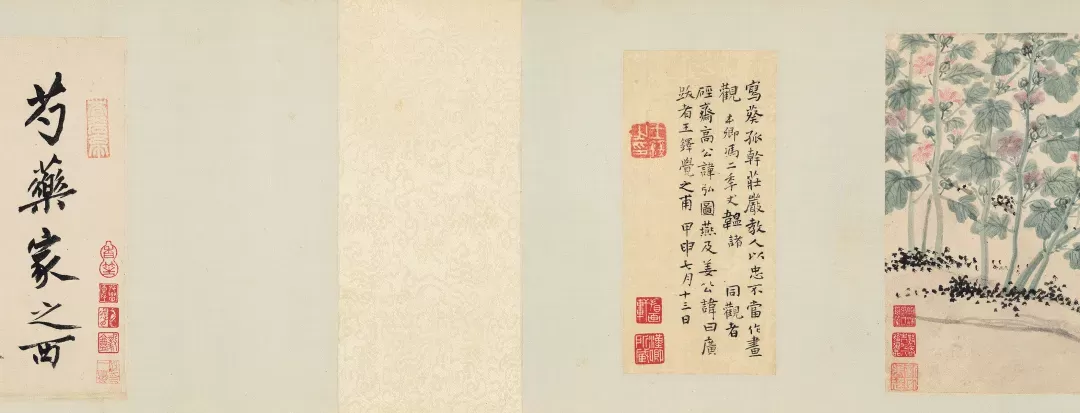 寫葵孤幹莊嚴教人以忠不當作畫
觀 本鄉馮二季丈韞諸 同觀者
硜齋高公諱弘圖燕及姜公諱曰廣
跋者王鐸覺之甫 甲申七月十三日
芍藥家之西